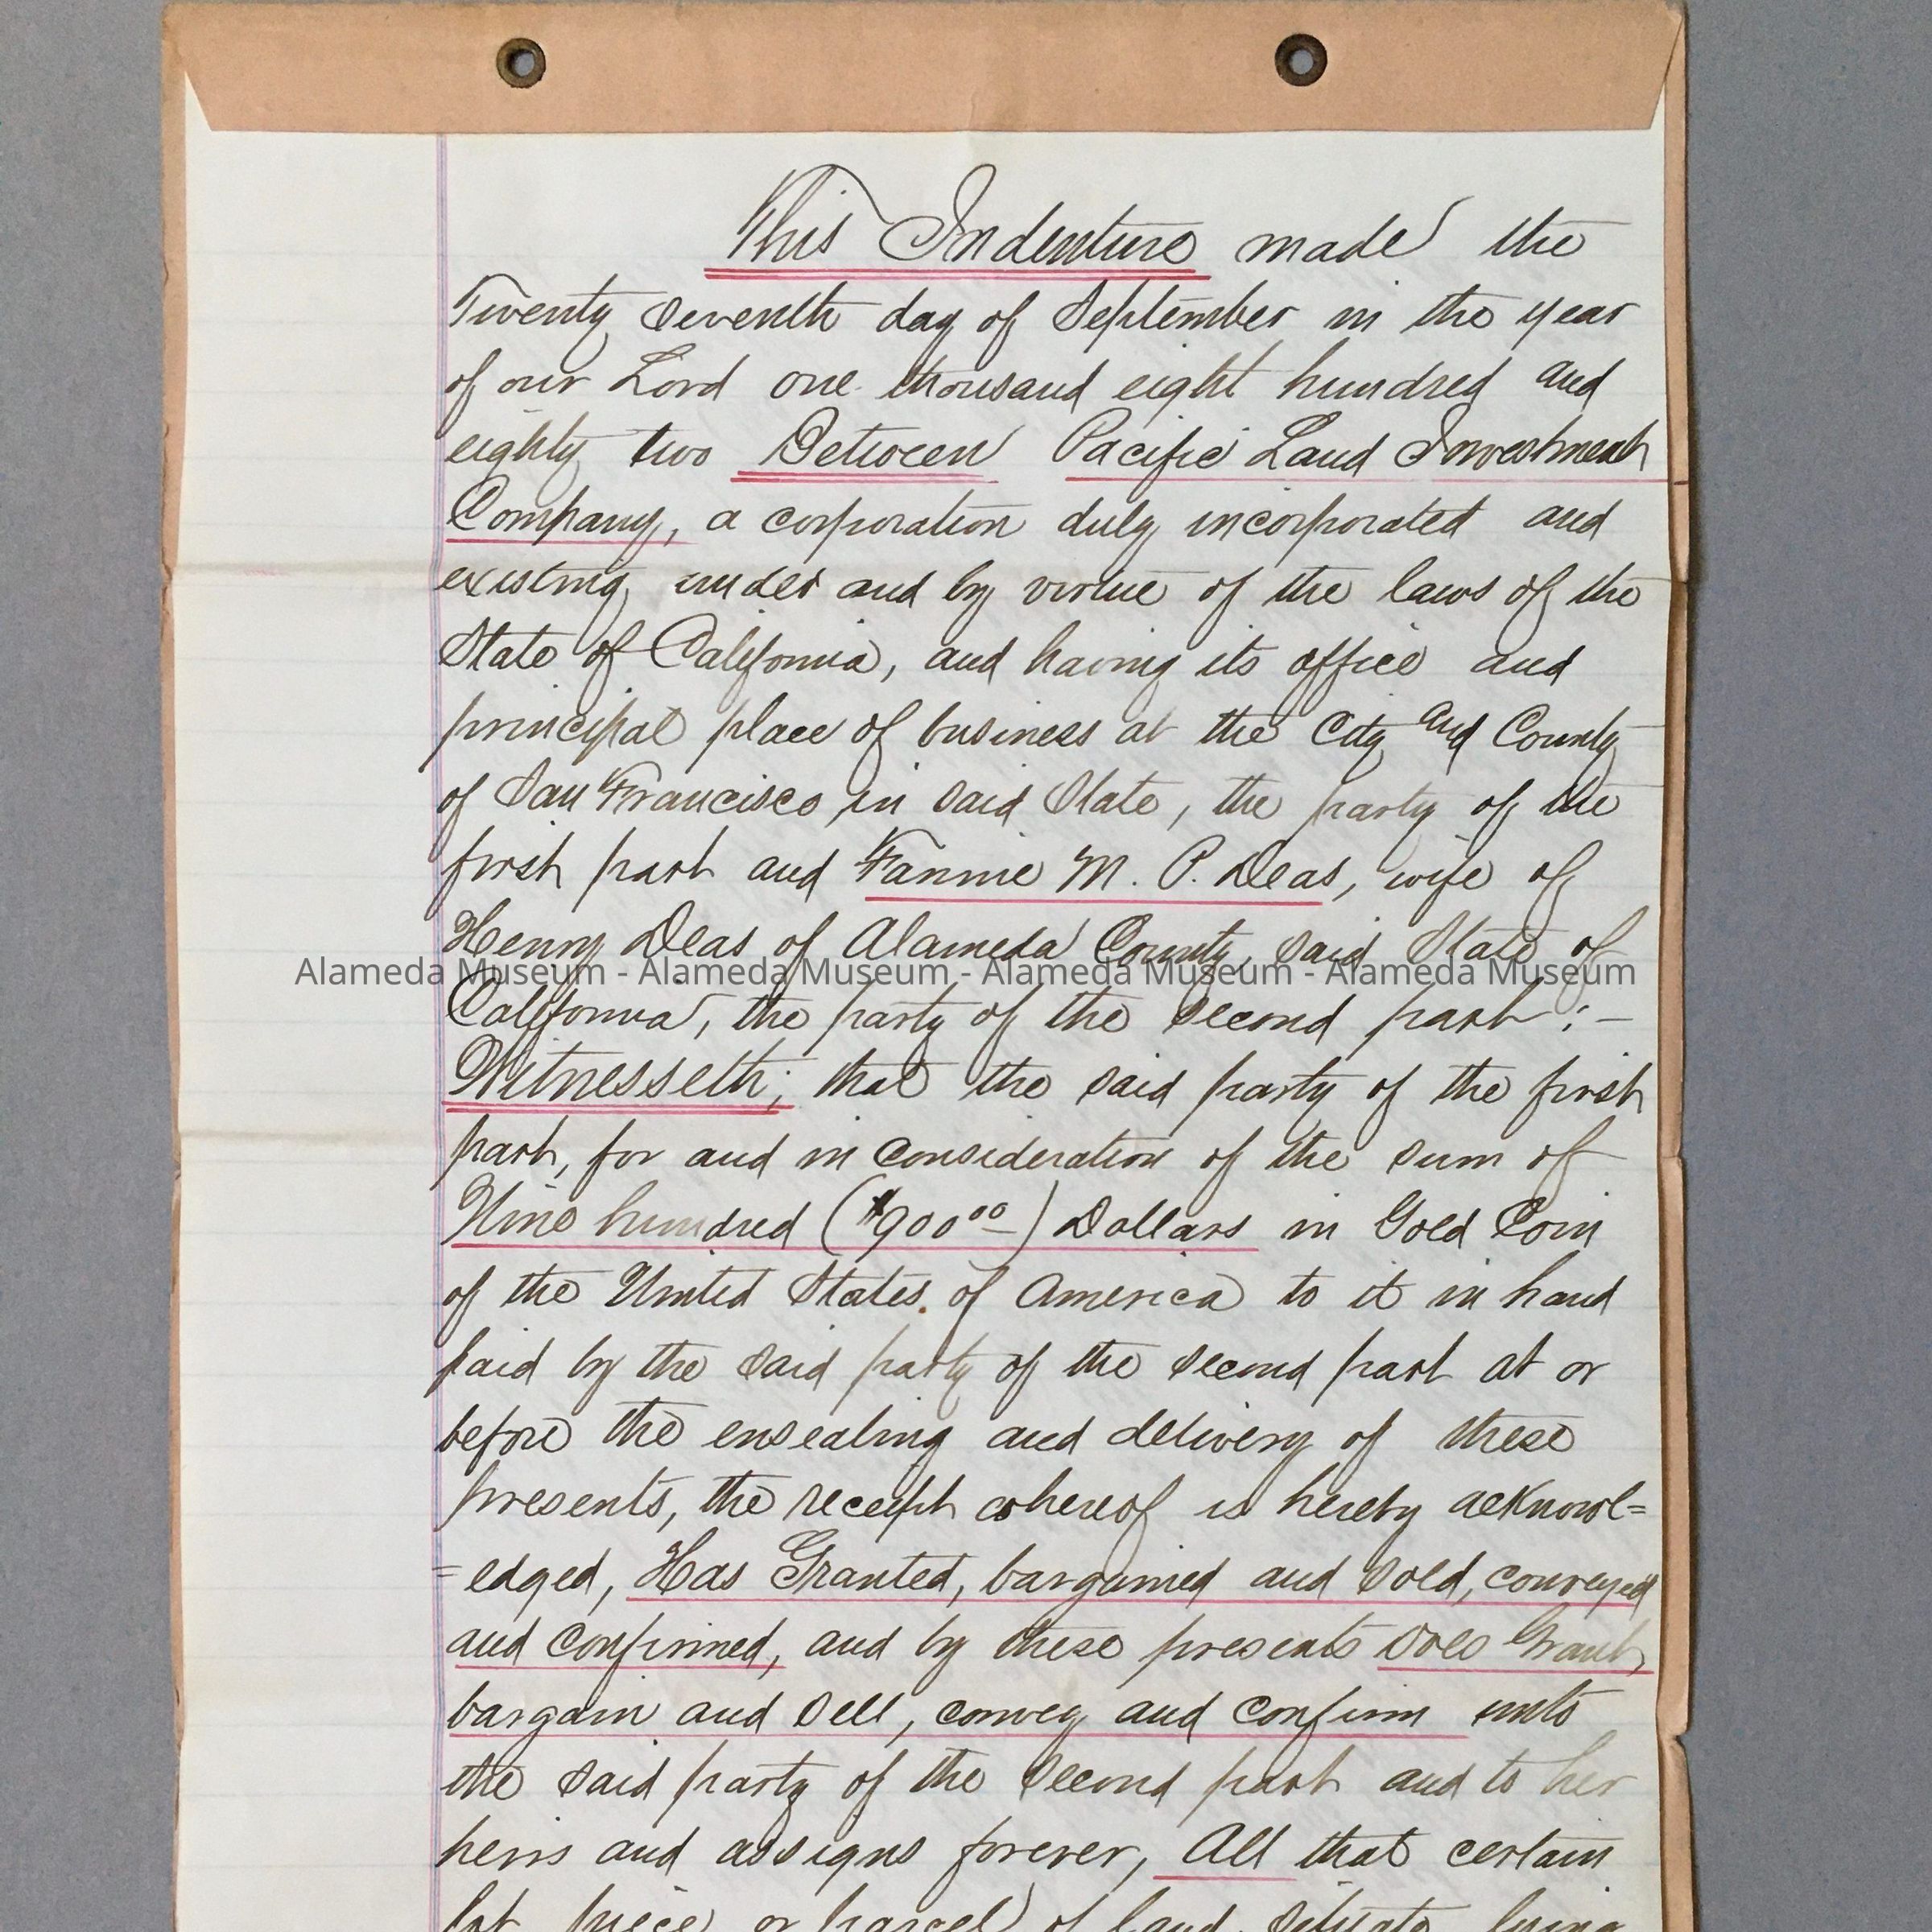 This Indenture made the
Twenty seventh day of September in the year
of our Lord one thousand eight hundred and
eighty two Between Pacific Land Investment
Company, a corporation duly incorporated and
existing under and by virtue of the laws of the
State of California, and having its office and
principal place of business at the City and County
of San Francisco in said State, the party of the
first part and Fannie M. P. Deas, wife of
Henry Deas of Alameda County, said State of
Alameda Museum - Alameda Museum - Alameda Museum - Alameda Museum
California, the party of the second part :-
Witnesseth; that the said party of the first
part, for and in consideration of the sum of
Nine hundred ($900.00) Dollars in Gold Coin
of the United States of America to it in hand
paid by the said party of the second part at or
before the ensealing and delivery of these
presents, the receipt whereof is hereby acknowl=
=edged, Has Granted, bargained and sold, conveyed
and confirmed, and by these presents does Grant,
bargain and sell, convey and confirm unto
the said party of the second part and to her
heirs and assigns forever, All that certain
lot piece or parcel of land situate lying